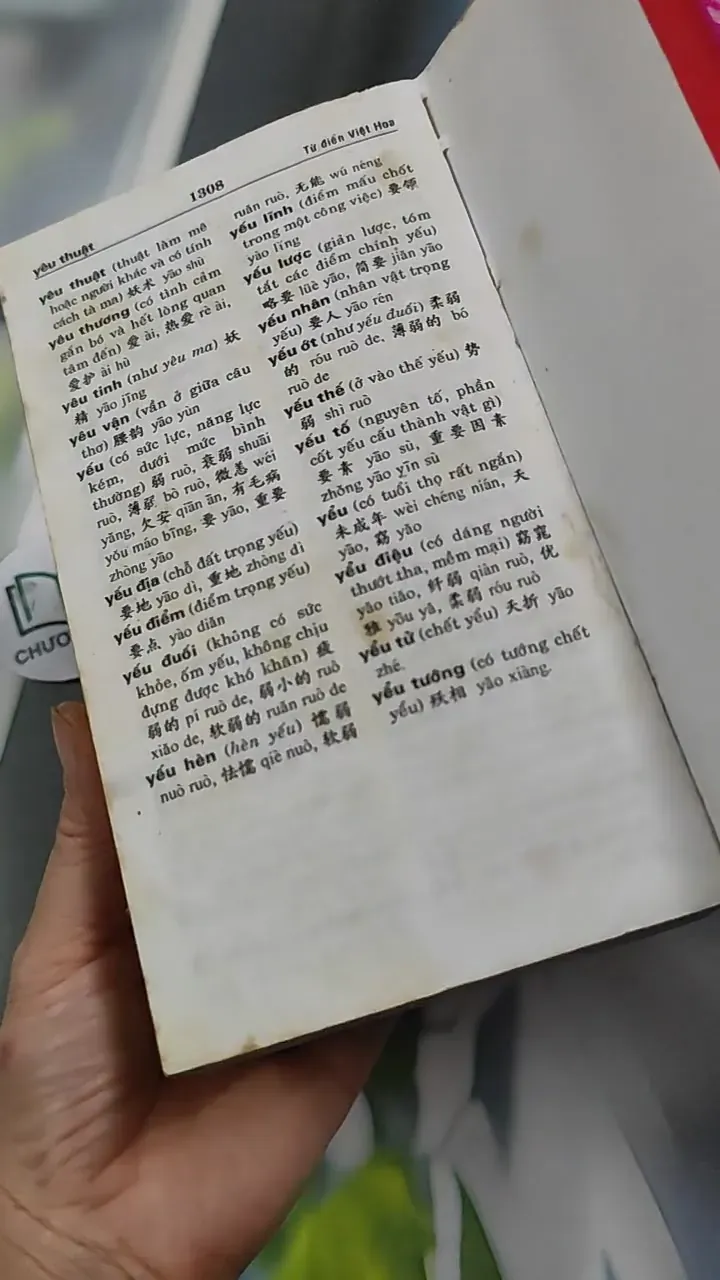 yêu thuật
1308
Từ điển Việt Hoa
yêu thuật (thuật làm mê
hoặc người khác và có tính
cách tà ma) 妖术 yāo shù
yêu thương (có tình cảm
gắn bó và hết lòng quan
tâm đến) 爱 ài, 热爱 rè ài,
爱护 ài hù
yêu tinh (như yêu ma) 妖
精 yāo jīng
yêu vận (vần ở giữa câu
thơ) 腰韵 yāo yùn
yếu (có sức lực, năng lực
kém, dưới mức bình
thường) 弱 ruò, 衰弱 shuāi
ruò, 薄弱 bò ruò, 微恙 wéi
yàng, 欠安 qiàn ān, 有毛病
yǒu máo bīng, 要 yào, 重要
zhòng yào
yếu địa (chỗ đất trọng yếu)
要地 yào dì, 重地 zhòng dì
yếu điểm (điểm trọng yếu)
要点 yào diǎn
yếu đuối (không có sức
khỏe, ốm yếu, không chịu
đựng được khó khăn) 疲
弱的 pí ruò de, 弱小的 ruò
xiǎo de, 软弱的 ruǎn ruò de
yếu hèn (hèn yếu) 懦弱
nuò ruò, 怯懦 qiè nuò, 软弱
ruǎn ruò, 无能 wú néng
yếu lĩnh (điểm mấu chốt
trong một công việc) 要领
yào lǐng
yếu lược (giản lược, tóm
tắt các điểm chính yếu)
略要 lüè yào, 简要 jiǎn yào
yếu nhân (nhân vật trọng
yếu) 要人 yào rén
yếu ớt (như yếu đuối) 柔弱
的 róu ruò de, 薄弱的 bó
ruò de
yếu thế (ở vào thế yếu) 势
弱 shì ruò
yếu tố (nguyên tố, phần
cốt yếu cấu thành vật gì)
要素 yào sù, 重要因素
zhòng yào yīn sù
yểu (có tuổi thọ rất ngắn)
未成年 wèi chéng nián, 夭
yāo, 窈 yǎo
yểu điệu (có dáng người
thướt tha, mềm mại) 窈窕
yǎo tiǎo, 纤弱 qiàn ruò, 优
雅 yōu yǎ, 柔弱 róu ruò
yểu tử (chết yểu) 夭折 yāo
zhé.
yểu tướng (có tướng chết
yểu) 殀相 yāo xiàng.
CHƯƠ